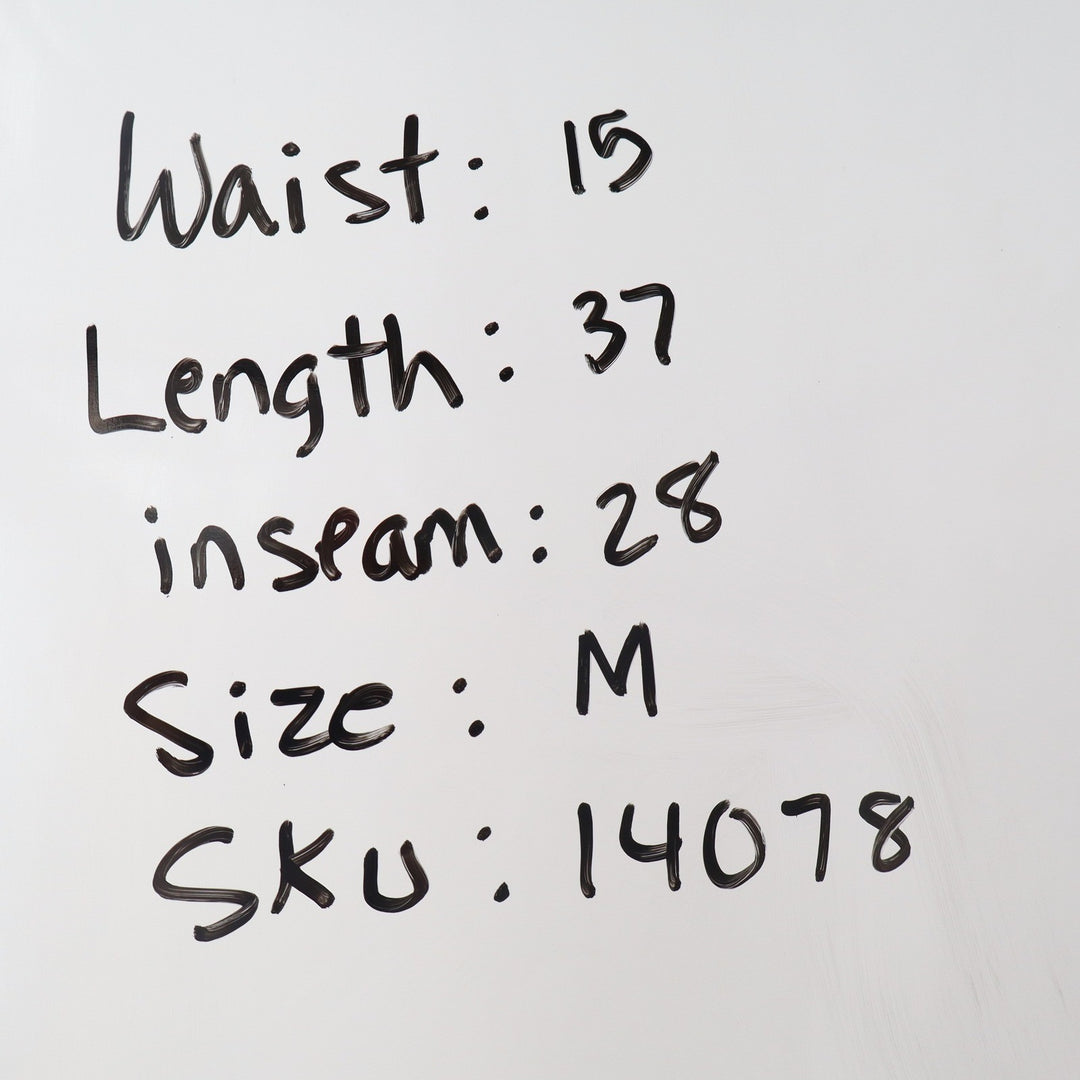 Waist: 15
Length: 37
inseam: 28
Size: M
SKU: 14078